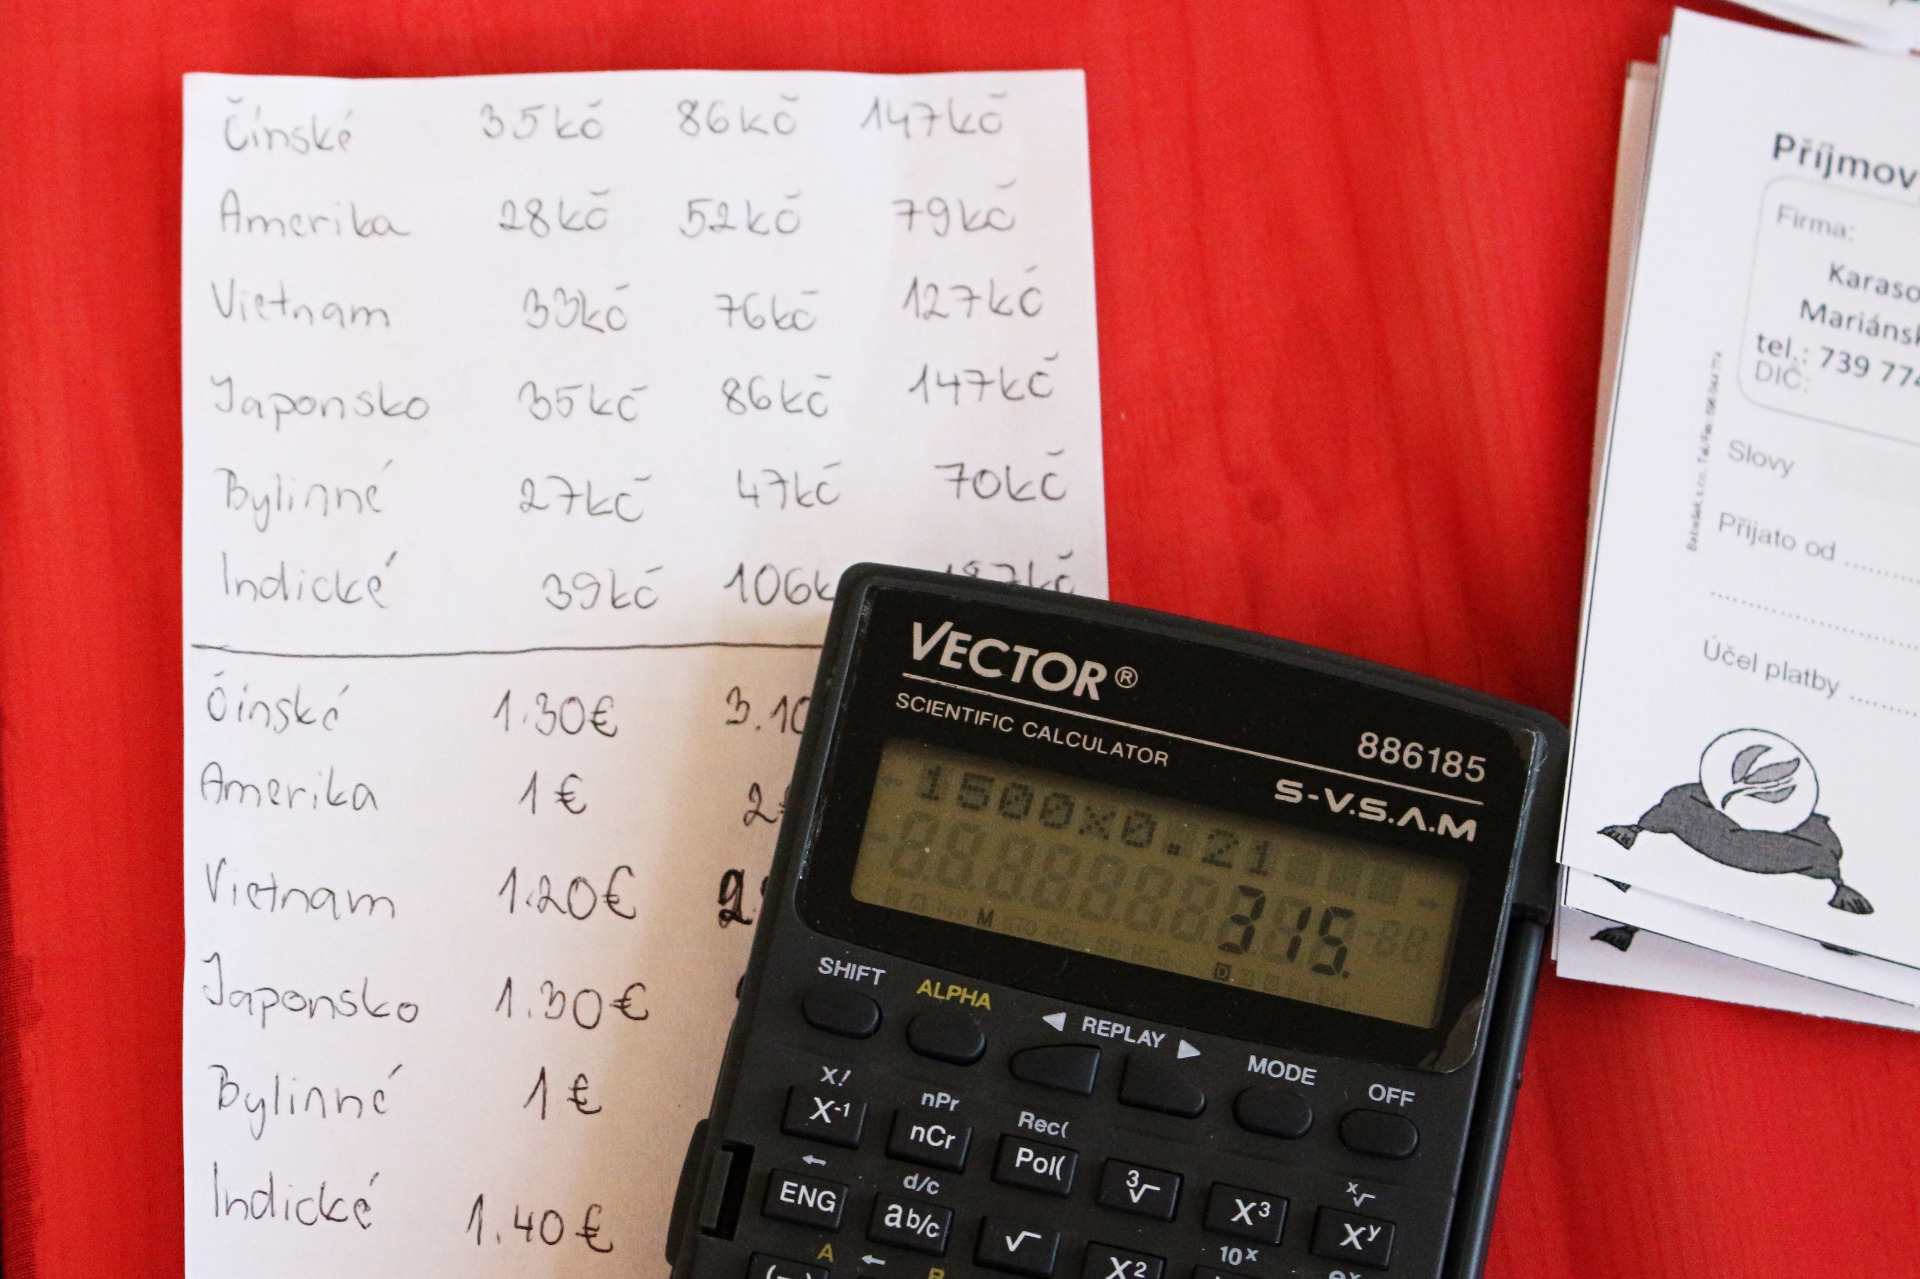 Čínské 35kč 86kč 147kč
Amerika 28kč 52kč 79kč
Vietnam 33kč 76kč 127kč
Japonsko 35kč 86kč 147kč
Bylinné 27kč 47kč 70kč
Indické 39kč 106k 187kč
Čínské 1.30€ 3.10
Amerika 1€ 2€
Vietnam 1.20€ 2.
Japonsko 1.30€
Bylinné 1€
Indické 1.40€
VECTOR®
SCIENTIFIC CALCULATOR
886185
S-V.S.A.M
1500×0.21
315.
M
D
SHIFT ALPHA ◀ REPLAY ▶ MODE OFF
x! nPr Rec(
X-1 nCr Pol( 3√ X3 x√
← d/c
ENG ab/c √ X2 10x Xy
A ← B ex
(−)
Příjmov
Firma:
Karaso
Mariánsk
tel.: 739 774
DIČ:
Slovy
Přijato od
Účel platby